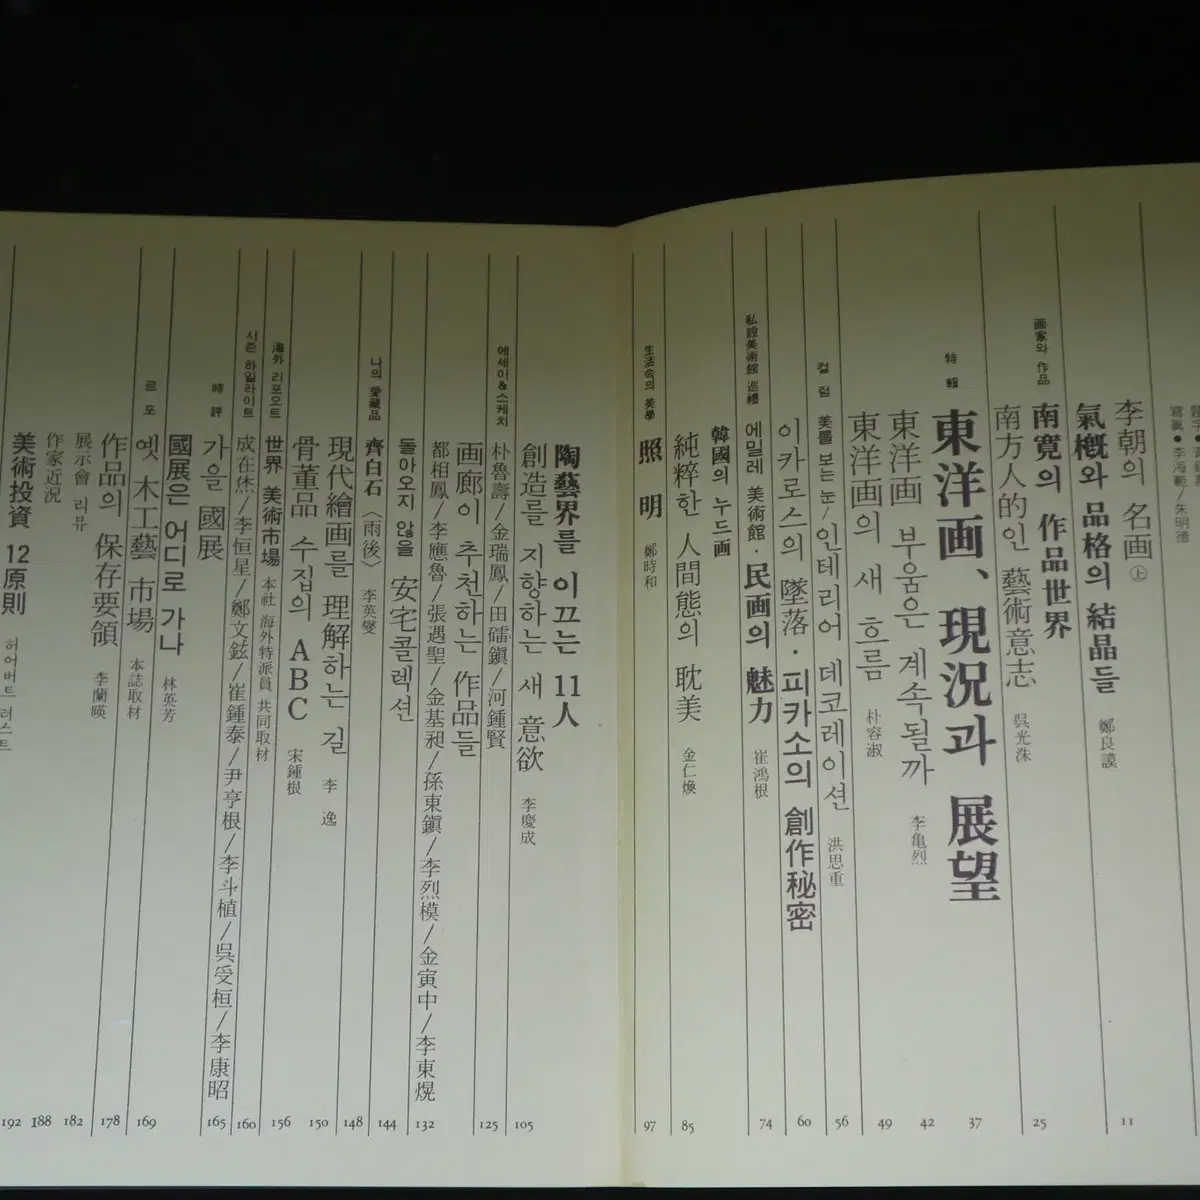 寫眞●李海範/朱明德
李朝의 名画㊤
氣槪와 品格의 結晶들 鄭良謨 11
画家와 作品
南寬의 作品世界
南方人的인 藝術意志 吳光洙 25
特輯
東洋画、現況과 展望 37
東洋画 부움은 계속될까 李亀烈 42
東洋画의 새 흐름 朴容淑 49
컬럼
美를 보는 눈/인테리어 데코레이션 洪思重 56
이카로스의 墜落·피카소의 創作秘密 60
私設美術館 巡禮
에밀레 美術館·民画의 魅力 崔鴻根 74
韓國의 누드画
純粹한 人間態의 耽美 金仁煥 85
生活속의 美學
照明 鄭時和 97
陶藝界를 이끄는 11人
創造를 지향하는 새 意欲 李慶成 105
에세이&스케치
朴魯壽/金瑞鳳/田礌鎭/河鍾賢 125
画廊이 추천하는 作品들
都相鳳/李應魯/張遇聖/金基昶/孫東鎭/李烈模/金寅中/李東熀 132
돌아오지 않을 安宅콜렉션 144
나의 愛藏品
齊白石〈雨後〉 李英燮 148
現代繪画를 理解하는 길 李逸
骨董品 수집의 ABC 宋鍾根 150
海外 리포오트
世界 美術市場 本社 海外特派員 共同取材 156
시즌 하일라이트
成在烋/李恒星/鄭文鉉/崔鍾泰/尹亨根/李斗植/吳受桓/李康昭 160
時評
가을 國展
國展은 어디로 가나 林英芳 165
르포
옛 木工藝 市場 本誌取材 169
作品의 保存要領 李蘭暎 178
展示會 리뷰 182
作家近況 188
美術投資 12原則 허어버트 러스트 192